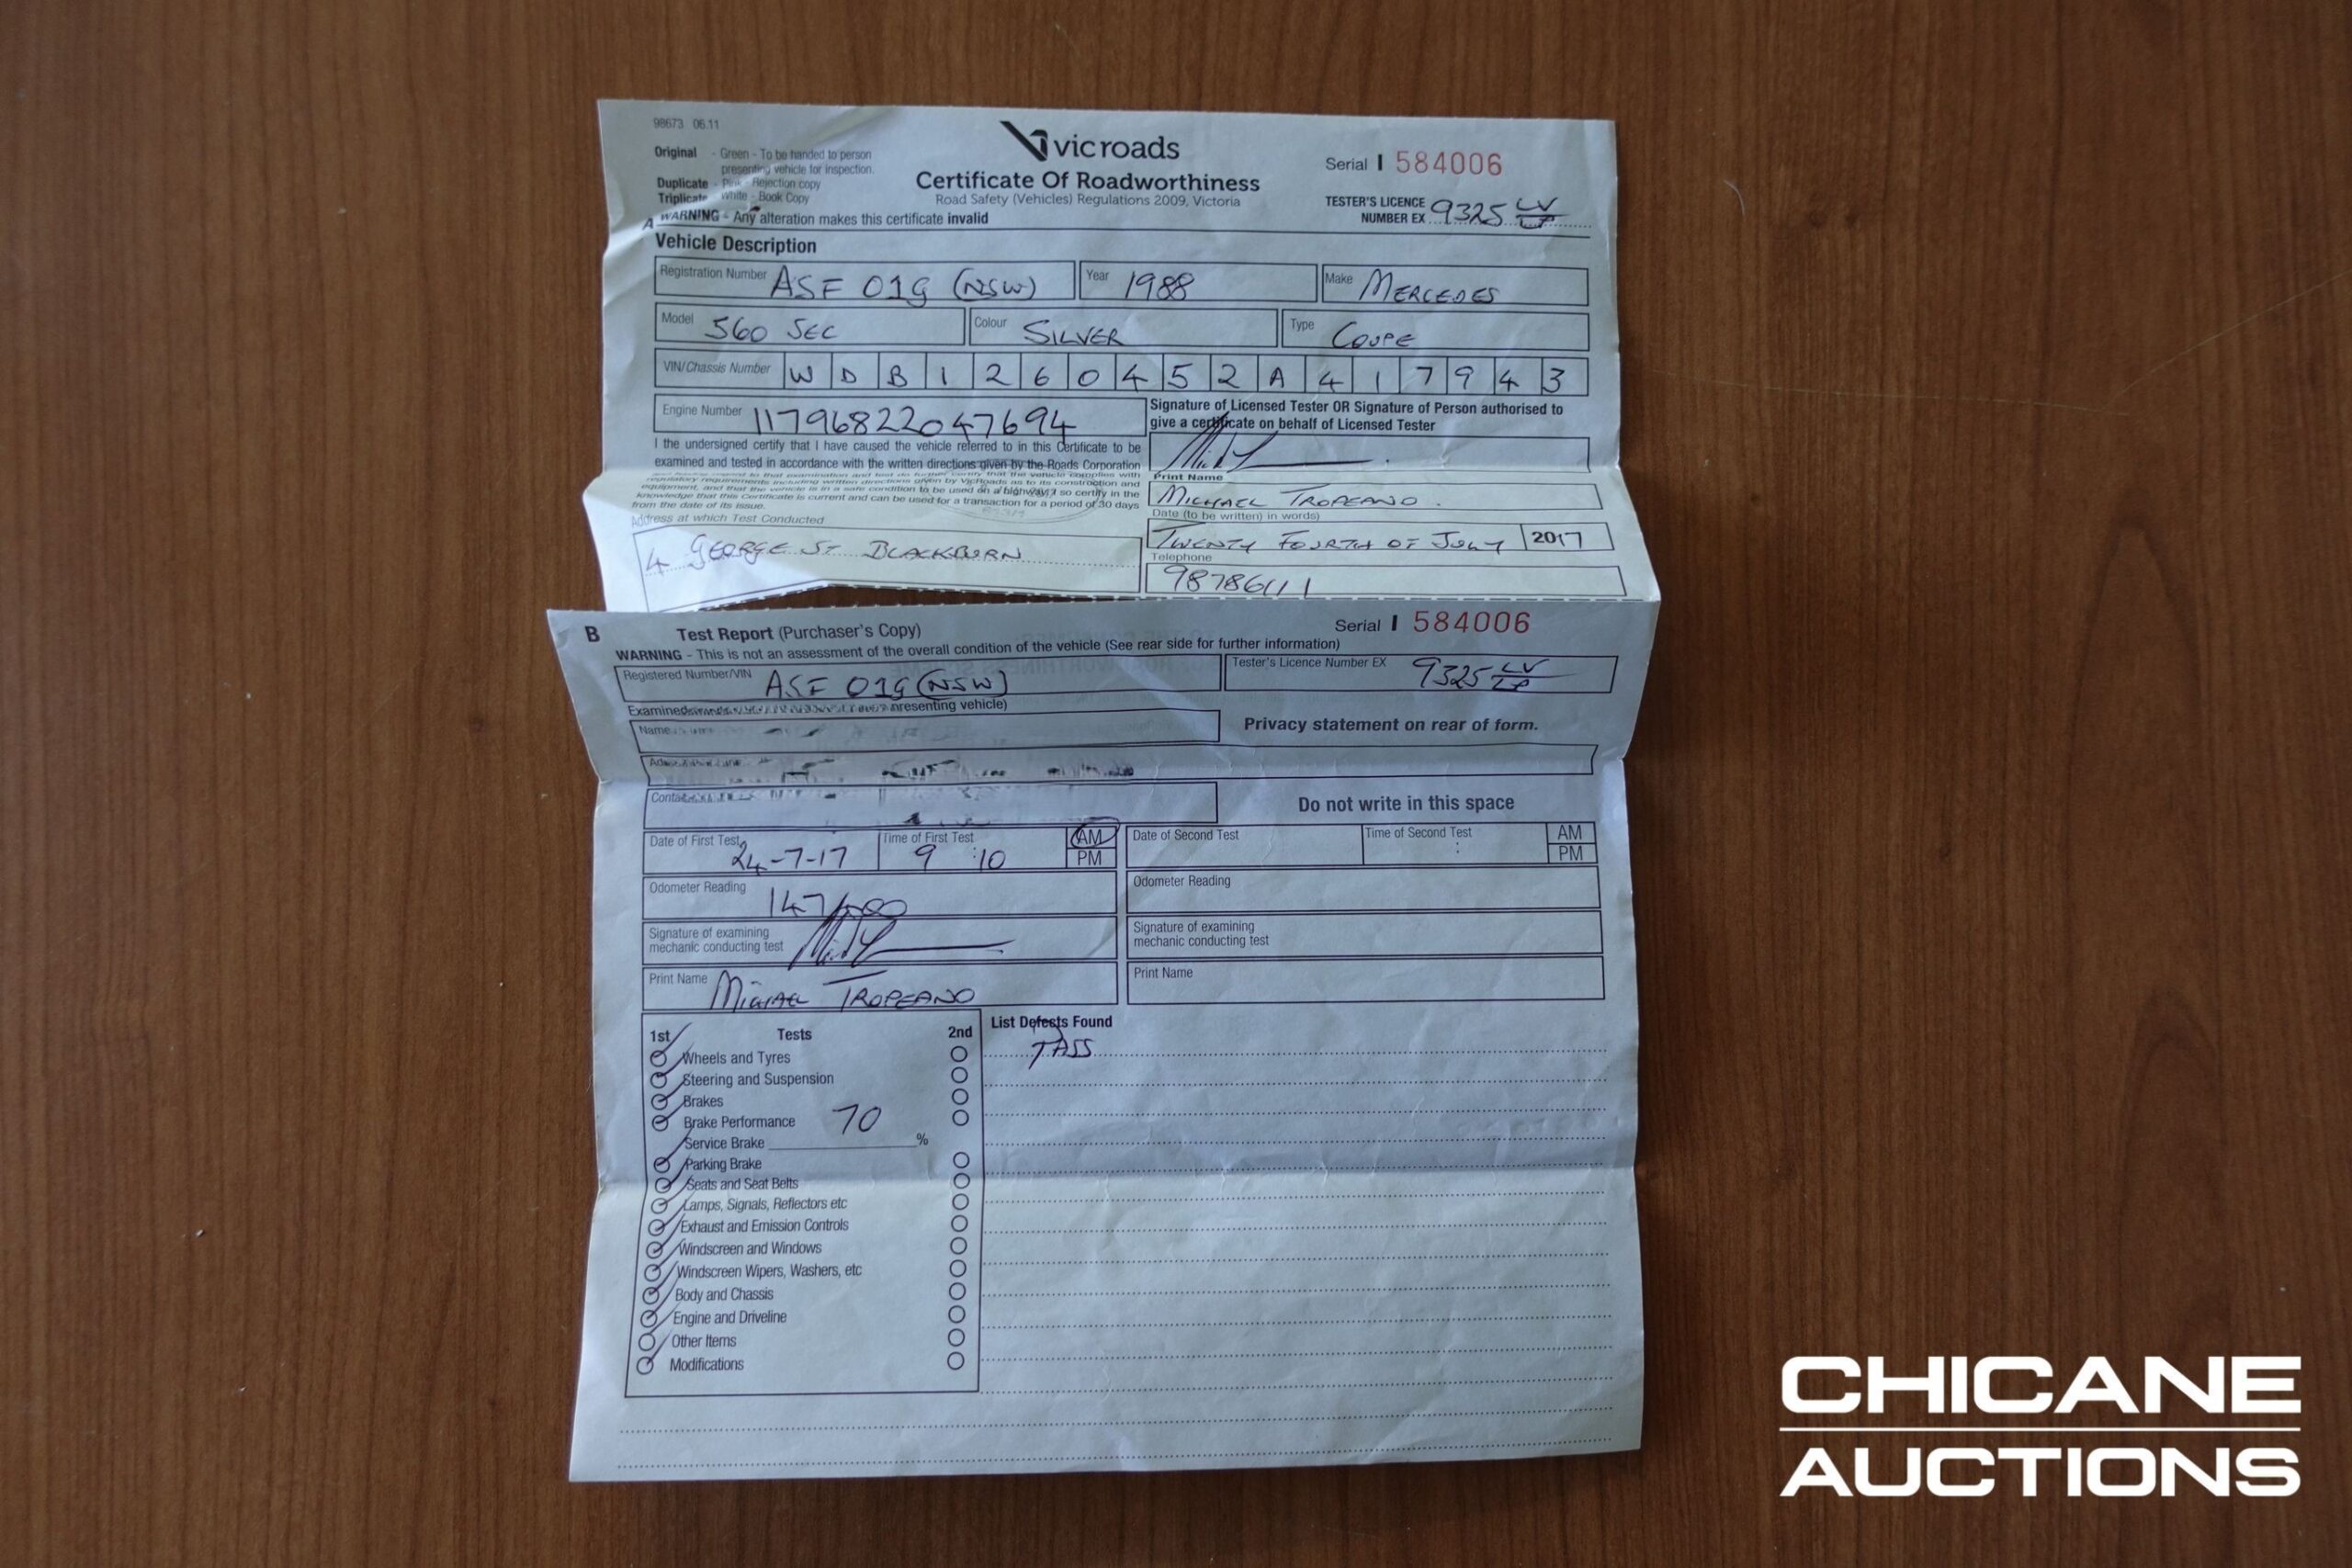 98673 06.11
Original - Green - To be handed to person
presenting vehicle for inspection.
Duplicate - Pink - Rejection copy
Triplicate - White - Book Copy
vicroads
Certificate Of Roadworthiness
Road Safety (Vehicles) Regulations 2009, Victoria
Serial I 584006
TESTER'S LICENCE
NUMBER EX 9325 LV
A WARNING - Any alteration makes this certificate invalid
Vehicle Description
Registration Number ASF 01G (NSW) Year 1988 Make MERCEDES
Model 560 SEC Colour SILVER Type COUPE
VIN/Chassis Number W D B 1 2 6 0 4 5 2 A 4 1 7 9 4 3
Engine Number 11796822047694
Signature of Licensed Tester OR Signature of Person authorised to
give a certificate on behalf of Licensed Tester
I the undersigned certify that I have caused the vehicle referred to in this Certificate to be
examined and tested in accordance with the written directions given by the Roads Corporation
regulatory requirements including written directions given by VicRoads as to its construction and
equipment, and that the vehicle is in a safe condition to be used on a highway. I so certify in the
knowledge that this Certificate is current and can be used for a transaction for a period of 30 days
from the date of its issue.
Print Name
MICHAEL TROPEANO
Date (to be written) in words)
TWENTY FOURTH OF JULY 2017
Telephone
98786111
Address at which Test Conducted
4 GEORGE ST BLACKBURN
B Test Report (Purchaser's Copy) Serial I 584006
WARNING - This is not an assessment of the overall condition of the vehicle (See rear side for further information)
Registered Number/VIN ASF 01G (NSW) Tester's Licence Number EX 9325 LV
Examined presenting vehicle)
Name
Privacy statement on rear of form.
Do not write in this space
Date of First Test 24-7-17 Time of First Test 9 : 10 AM PM
Date of Second Test Time of Second Test : AM PM
Odometer Reading Odometer Reading
Signature of examining
mechanic conducting test
Signature of examining
mechanic conducting test
Print Name MICHAEL TROPEANO Print Name
1st Tests 2nd
Wheels and Tyres
Steering and Suspension
Brakes
Brake Performance
Service Brake 70 %
Parking Brake
Seats and Seat Belts
Lamps, Signals, Reflectors etc
Exhaust and Emission Controls
Windscreen and Windows
Windscreen Wipers, Washers, etc
Body and Chassis
Engine and Driveline
Other Items
Modifications
List Defects Found
PASS
CHICANE
AUCTIONS